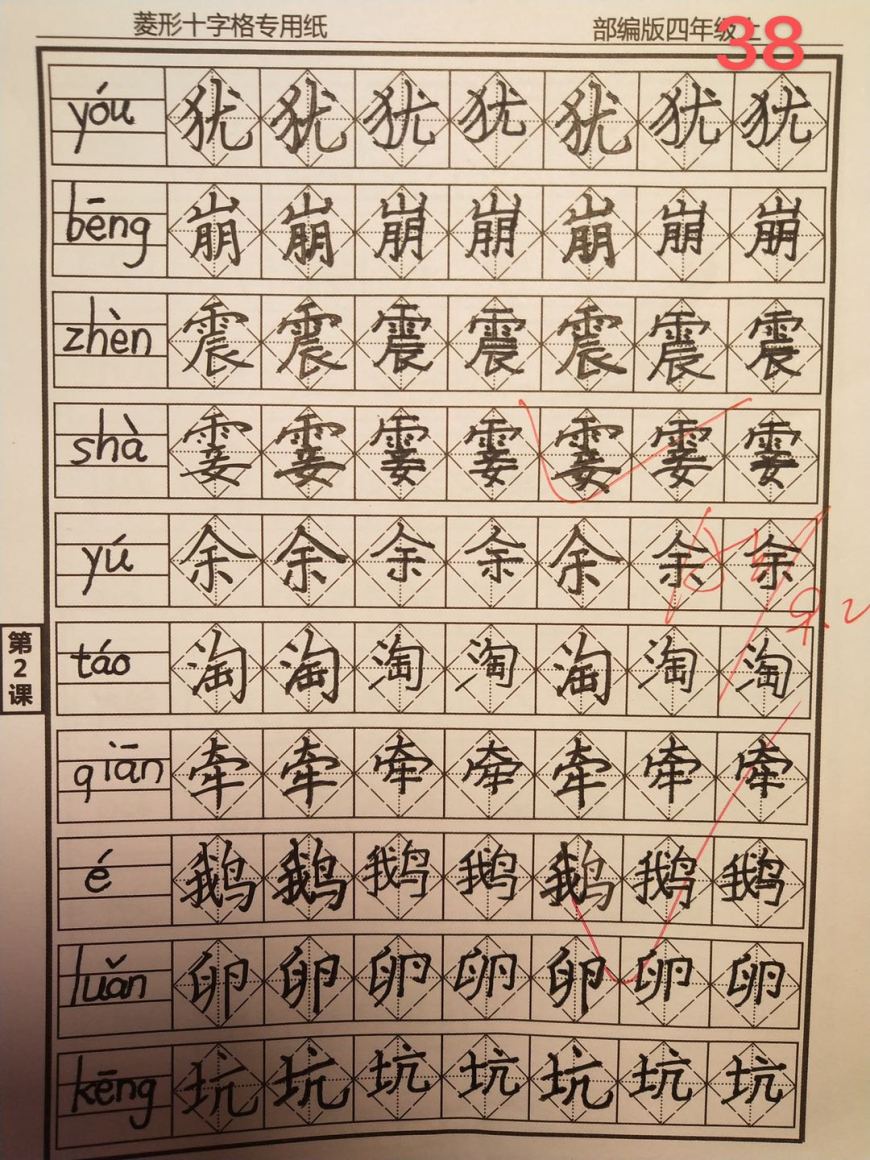 菱形十字格专用纸 部编版四年级上
38
yóu 犹 犹 犹 犹 犹 犹 犹
bēng 崩 崩 崩 崩 崩 崩 崩
zhèn 震 震 震 震 震 震 震
shà 霎 霎 霎 霎 霎 霎 霎
yú 余 余 余 余 余 余 余
第2课
táo 淘 淘 淘 淘 淘 淘 淘
qiān 牵 牵 牵 牵 牵 牵 牵
é 鹅 鹅 鹅 鹅 鹅 鹅 鹅
luǎn 卵 卵 卵 卵 卵 卵 卵
kēng 坑 坑 坑 坑 坑 坑 坑